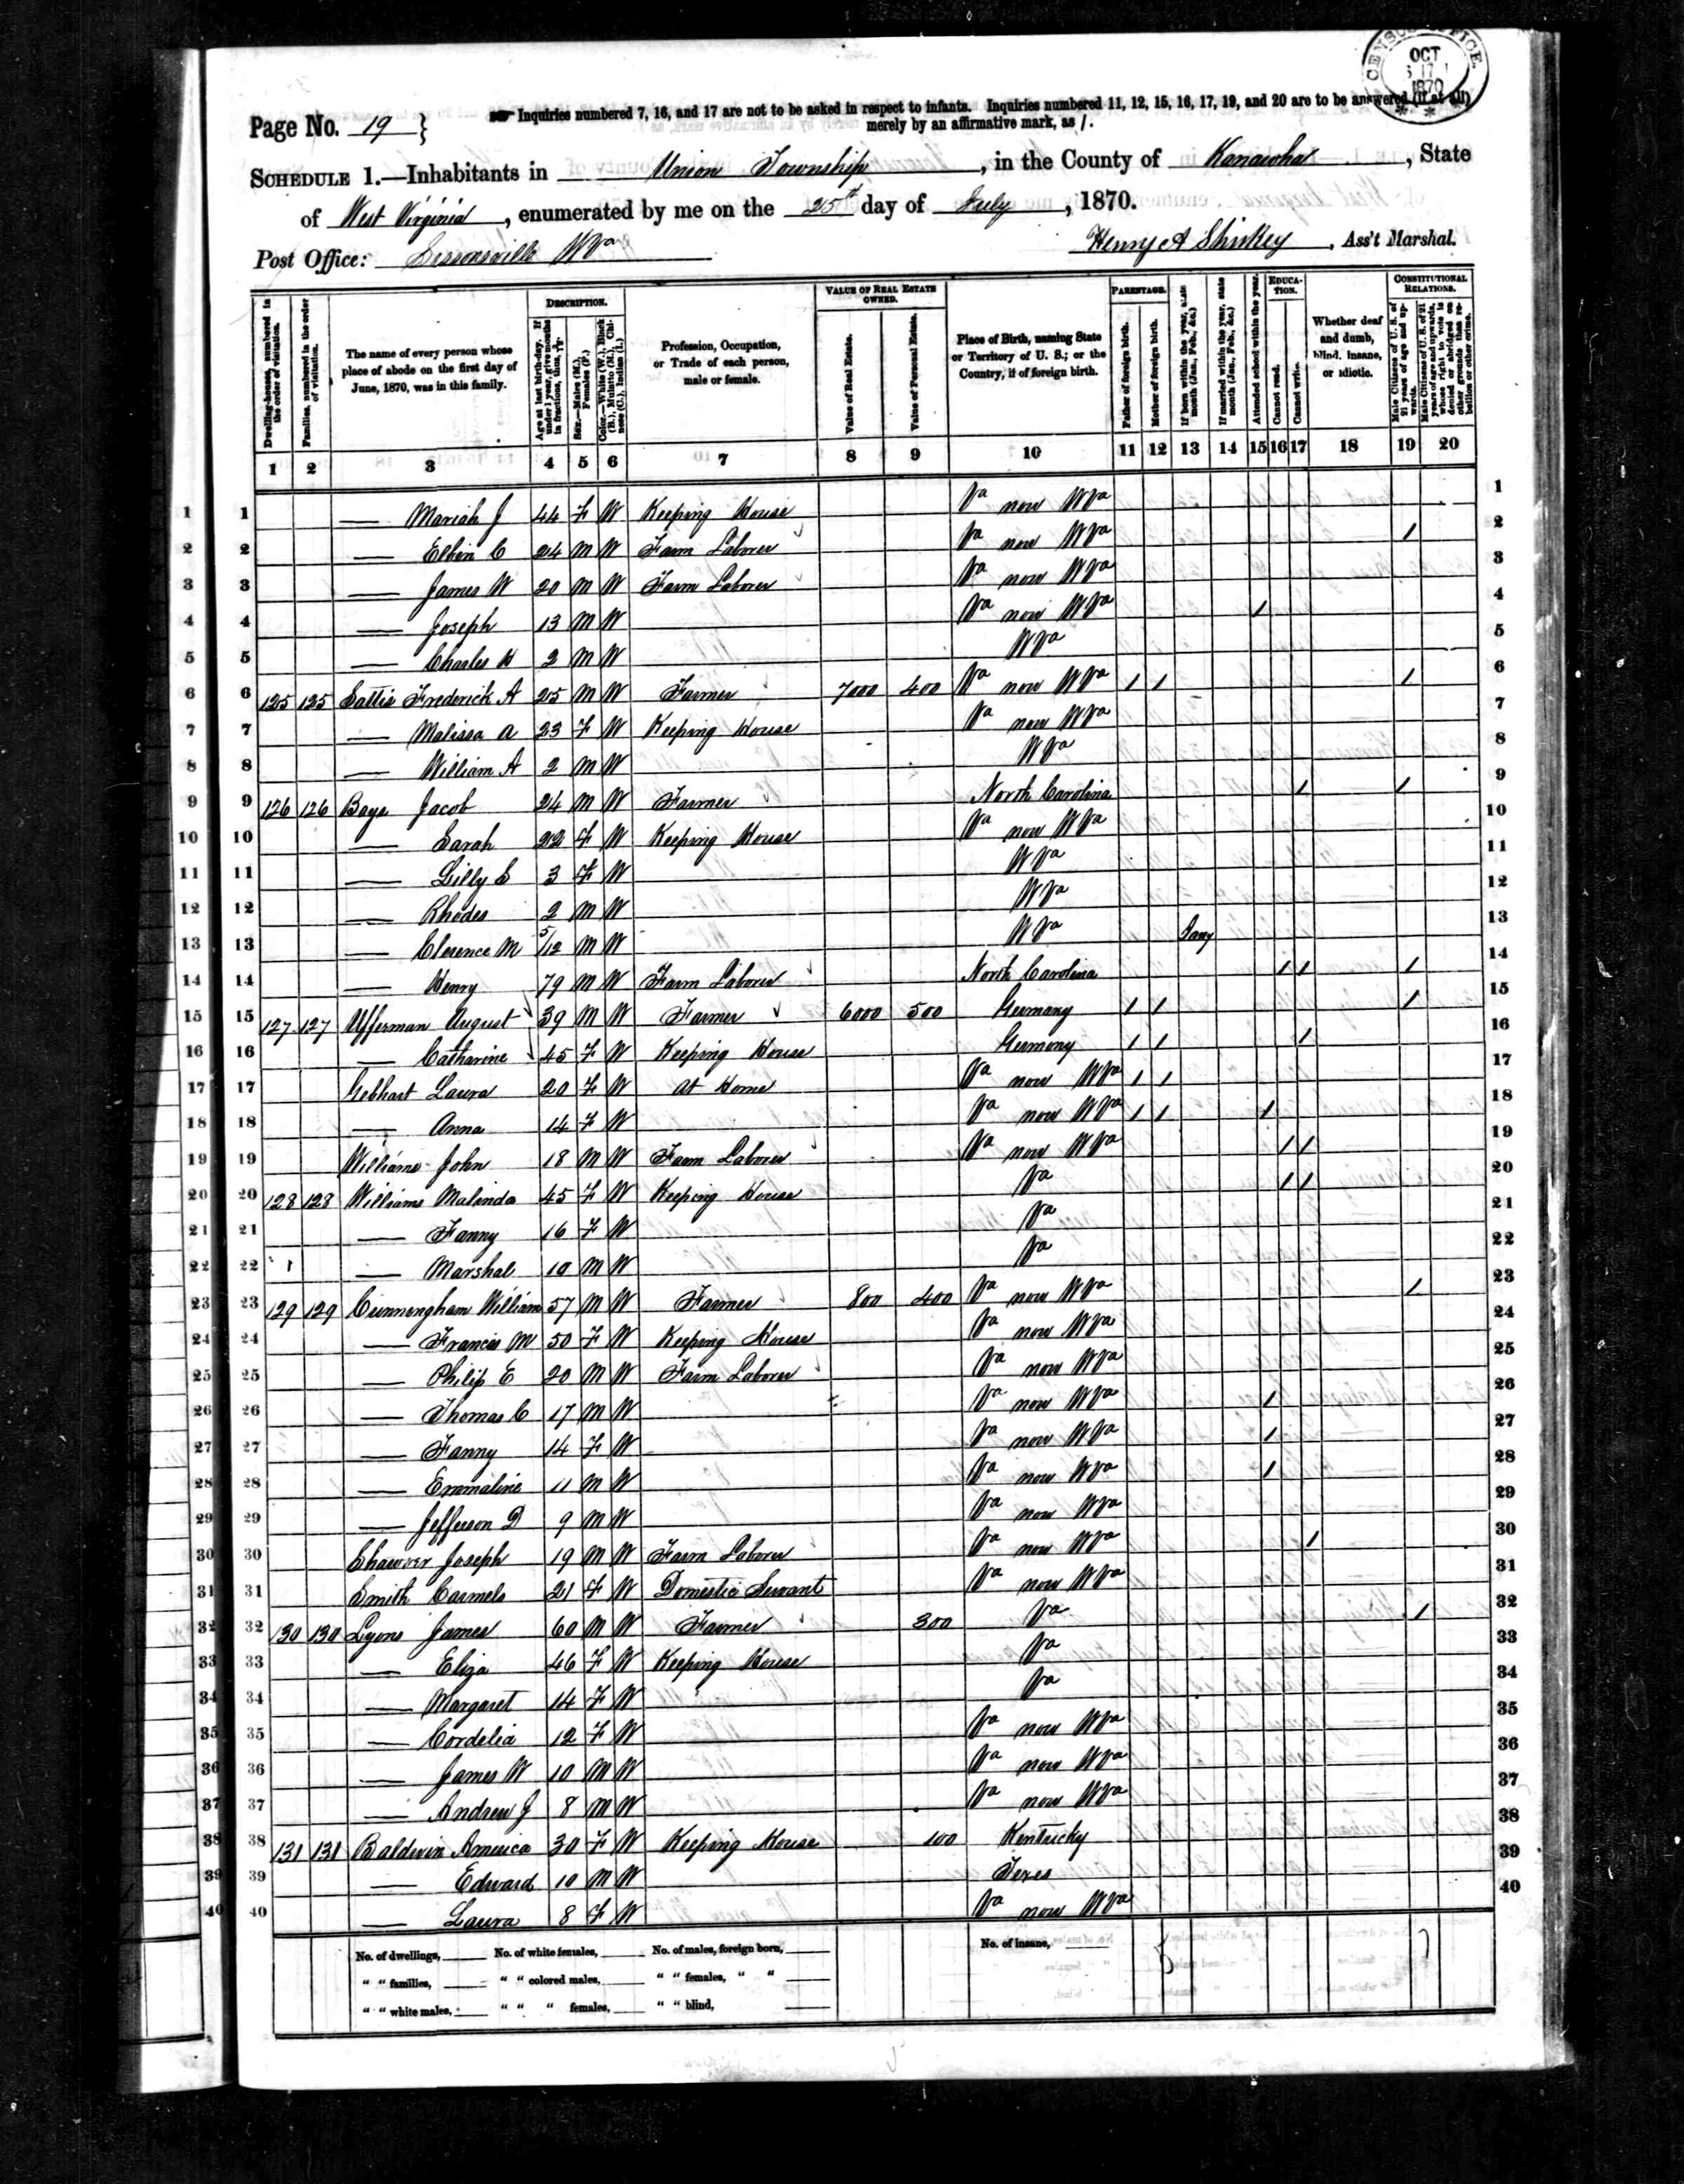 CENSUS OFFICE
OCT
1870
Page No. 19 }
Inquiries numbered 7, 16, and 17 are not to be asked in respect to infants. Inquiries numbered 11, 12, 15, 16, 17, 19, and 20 are to be answered (if at all)
merely by an affirmative mark, as /.
SCHEDULE 1.—Inhabitants in Union Township, in the County of Kanawha, State
of West Virginia, enumerated by me on the 25th day of July, 1870.
Post Office: Sissonsville WVa
Henry A Shirkey, Ass't Marshal.
Dwelling-houses, numbered in the order of visitation.
Families, numbered in the order of visitation.
The name of every person whose place of abode on the first day of June, 1870, was in this family.
DESCRIPTION.
Age at last birth-day. If under 1 year, give months in fractions, thus, 3/12
Sex.—Males (M.), Females (F.)
Color.—White (W.), Black (B.), Mulatto (M.), Chinese (C.), Indian (I.)
Profession, Occupation, or Trade of each person, male or female.
VALUE OF REAL ESTATE OWNED.
Value of Real Estate.
Value of Personal Estate.
Place of Birth, naming State or Territory of U. S.; or the Country, if of foreign birth.
PARENTAGE.
Father of foreign birth.
Mother of foreign birth.
If born within the year, state month (Jan., Feb., &c.)
If married within the year, state month (Jan., Feb., &c.)
Attended school within the year.
EDUCATION.
Cannot read.
Cannot write.
Whether deaf and dumb, blind, insane, or idiotic.
CONSTITUTIONAL RELATIONS.
Male Citizens of U. S. of 21 years of age and upwards.
Male Citizens of U. S. of 21 years of age and upwards, whose right to vote is denied or abridged on other grounds than rebellion or other crime.
1 2 3 4 5 6 7 8 9 10 11 12 13 14 15 16 17 18 19 20
1 1 — Mariah J 44 F W Keeping House Va now WVa 1
2 2 — Elbin C 24 M W Farm Laborer Va now WVa / 2
3 3 — James W 20 M W Farm Laborer Va now WVa 3
4 4 — Joseph 13 M W Va now WVa / 4
5 5 — Charles H 2 M W WVa 5
6 6 125 125 Frederick A 25 M W Farmer 7000 400 Va now WVa / / / 6
7 7 — Malissa A 23 F W Keeping House Va now WVa 7
8 8 — William A 2 M W WVa 8
9 9 126 126 Bays Jacob 24 M W Farmer North Carolina / / 9
10 10 — Sarah 22 F W Keeping House Va now WVa 10
11 11 — Lilly E 3 F W WVa 11
12 12 — Rhodes 2 M W WVa 12
13 13 — Clerence M 5/12 M W WVa Jany 13
14 14 — Henry 79 M W Farm Laborer North Carolina / / / 14
15 15 127 127 Ufferman August 39 M W Farmer 6000 500 Germany / / / 15
16 16 — Catharine 45 F W Keeping House Germony / / / 16
17 17 Gebhart Laura 20 F W At Home Va now WVa / / 17
18 18 — Anna 14 F W Va now WVa / / / 18
19 19 Williams John 18 M W Farm Laborer Va now WVa / / 19
20 20 128 128 Williams Malinda 45 F W Keeping House Va / / 20
21 21 — Fanny 16 F W Va 21
22 22 — Marshal 10 M W Va 22
23 23 129 129 Cunningham William 57 M W Farmer 800 400 Va now WVa / 23
24 24 — Francis M 50 F W Keeping House Va now WVa 24
25 25 — Philip E 20 M W Farm Laborer Va now WVa 25
26 26 — Thomas C 17 M W Va now WVa / 26
27 27 — Fanny 14 F W Va now WVa / 27
28 28 — Emmaline 11 M W Va now WVa / 28
29 29 — Jefferson D 9 M W Va now WVa 29
30 30 Joseph 19 M W Farm Laborer Va now WVa / 30
31 31 Smith Carmela 21 F W Domestic Servant Va now WVa 31
32 32 130 130 Lyons James 60 M W Farmer 300 Va / 32
33 33 — Eliza 46 F W Keeping House Va 33
34 34 — Margaret 14 F W Va 34
35 35 — Cordelia 12 F W Va now WVa 35
36 36 — James W 10 M W Va now WVa 36
37 37 — Andrew J 8 M W Va now WVa 37
38 38 131 131 Baldwin America 30 F W Keeping House 100 Kentucky 38
39 39 — Edward 10 M W Texes 39
40 40 — Laura 8 F W Va now WVa 40
No. of dwellings, No. of white females, No. of males, foreign born, No. of insane, 5 7
" " families, " " colored males, " " females, " "
" " white males, " " " females, " " blind,